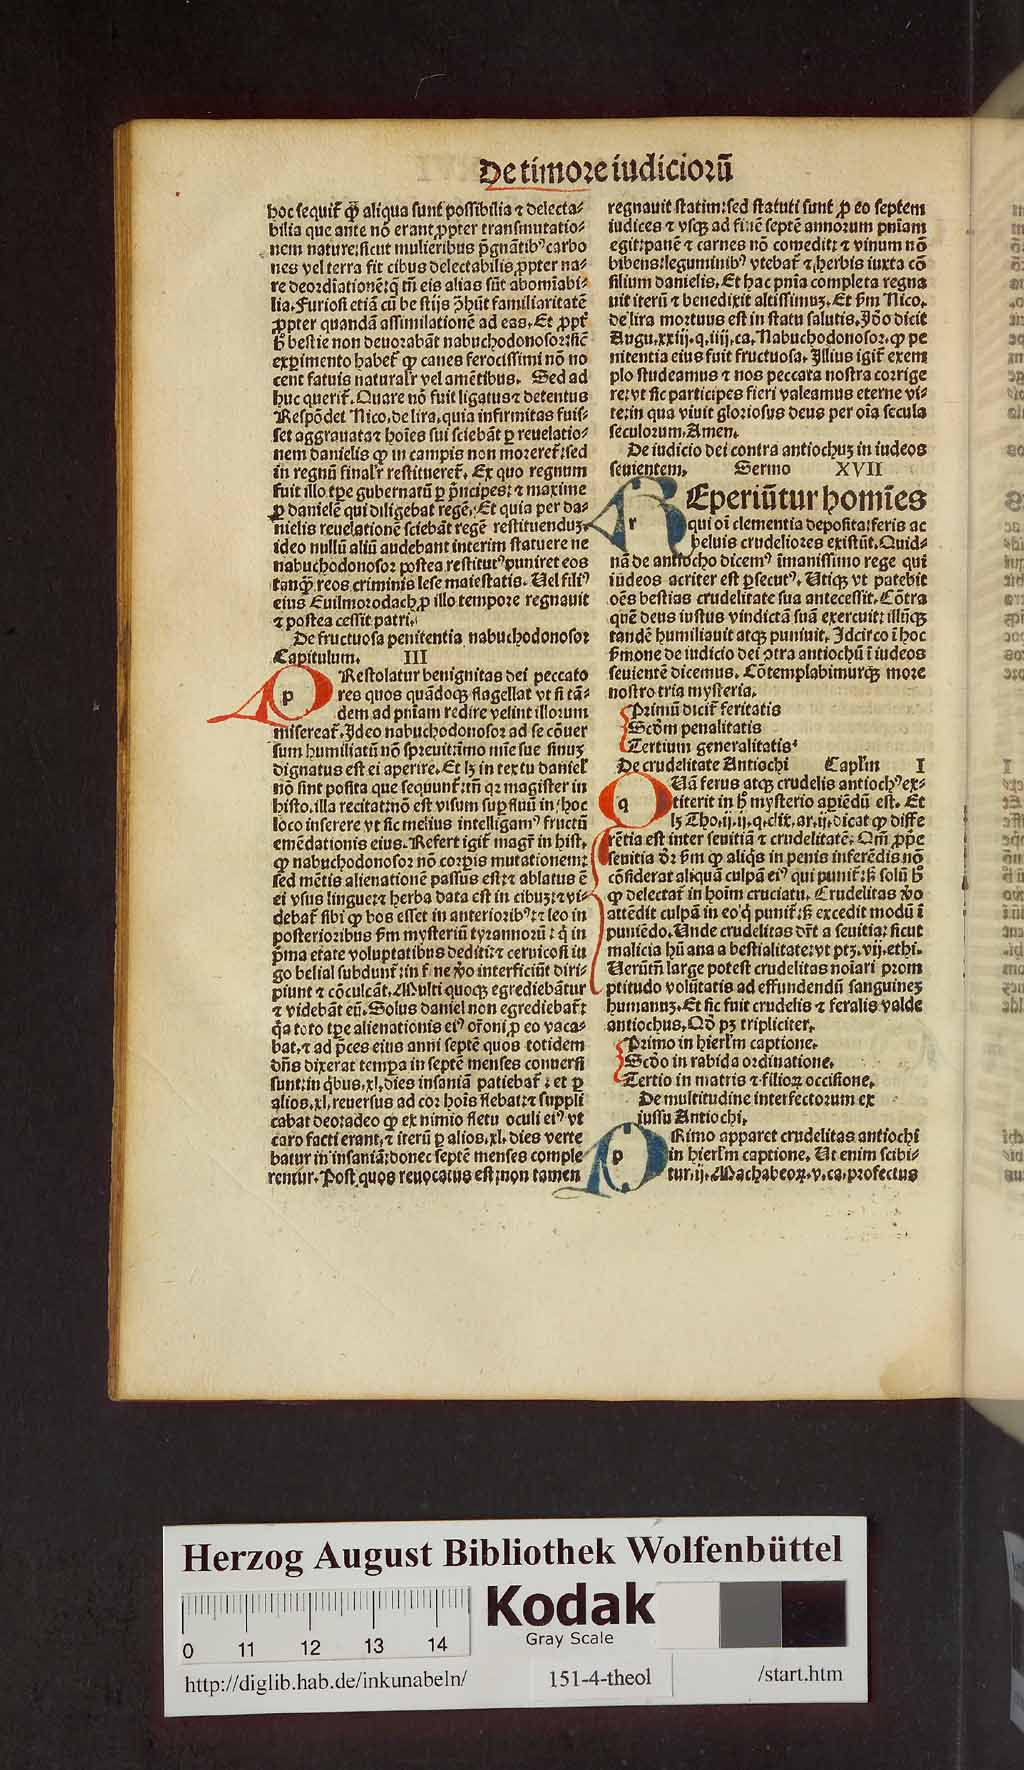 De timore iudiciorũ
hoc sequit᷑ ꝙ aliqua sunt possibilia ⁊ delecta-
bilia que ante nõ erant ꝓpter transmutatio-
nem nature: sicut mulieribus p̃gnãtibꝰ carbo
nes vel terra fit cibus delectabilis ꝓpter na-
re deordĩationẽ: q̃ tñ eis alias sũt abomĩabi-
lia. Furiosi etiã cũ bestijs ↄ̃hũt familiaritatẽ
ꝓpter quandã assimilationẽ ad eas. Et ꝓpt᷑
h̃ bestie non deuorabãt nabuchodonosor: sic̃
experimento habet᷑ ꝙ canes ferocissimi nõ no
cent fatuis naturalr̃ vel amẽtibus. Sed ad
huc querit᷑. Quare nõ fuit ligatus ⁊ detentus
Respõdet Nico. de lira. quia infirmitas fuis-
set aggrauata ⁊ hoĩes sui sciebãt ꝑ reuelatio-
nem danielis ꝙ in campis non moreret᷑: sed
in regnũ finalr̃ restitueret᷑. Ex quo regnum
fuit illo tp̃e gubernatũ ꝑ p̃ncipes: ⁊ maxime
ꝑ danielẽ qui diligebat regẽ. Et quia per da-
nielis reuelationẽ sciebãt regẽ restituenduꝫ.
ideo nullũ aliũ audebant interim statuere ne
nabuchodonosor postea restitutꝰ puniret eos
tanq̃ȝ reos criminis lese maiestatis. Uel filiꝰ
eius Euilmorodach ꝓ illo tempore regnauit
⁊ postea cessit patri.
De fructuosa penitentia nabuchodonosor
Capitulum. III
p Restolatur benignitas dei peccato
res quos quãdoqꝫ flagellat vt si tã-
dem ad pñiam redire velint illorum
misereat᷑. Ideo nabuchodonosor ad se cõuer
sum humiliatũ nõ spreuit: imo mĩe sue sinuꝫ
dignatus est ei aperire. Et lꝫ in textu daniel̃
nõ sint posita que sequunt᷑: tñ qꝛ magister in
histo. illa recitat: nõ est visum supfluũ in hoc
loco inserere vt sic melius intelligamꝰ fructũ
emẽdationis eius. Refert igit᷑ magr̃ in hist.
ꝙ nabuchodonosor nõ corpis mutationem:
sed mẽtis alienationẽ passus est: ⁊ ablatus ẽ
ei vsus lingue: ⁊ herba data est in cibuꝫ: ⁊ vi-
debat᷑ sibi ꝙ bos esset in anterioribꝰ: ⁊ leo in
posterioribus ẜm mysteriũ tyrannorũ: q̃ in
p̃ma etate voluptatibus dediti: ⁊ ceruicosi iu
go belial subdunt᷑: in f ne ꝟo interficiũt diri-
piunt ⁊ cõculcãt. Multi quoqꝫ egrediebãtur
⁊ videbãt eũ. Solus daniel non egrediebat᷑:
q̃a toto tp̃e alienationis eiꝰ or̃oni ꝓ eo vaca-
bat. ⁊ ad p̃ces eius anni septẽ quos totidem
dñs dixerat tempa in septẽ menses conuersi
sunt: in q̃bus. xl. dies insaniã patiebat᷑: et ꝑ
alios. xl. reuersus ad cor hoĩs flebat: ⁊ suppli
cabat deo: adeo ꝙ ex nimio fletu oculi eiꝰ vt
caro facti erant. ⁊ iterũ ꝑ alios. xl. dies verte
batur in insaniã: donec septẽ menses comple
rentur. Post quos reuocatus est: non tamen
regnauit statim: sed statuti sunt ꝓ eo septem
iudices ⁊ vsqꝫ ad finẽ septẽ annorum pñiam
egit: panẽ ⁊ carnes nõ comedit: ⁊ vinum nõ
bibens: leguminibꝰ vtebat᷑ ⁊ herbis iuxta cõ
silium danielis. Et hac pñia completa regna
uit iterũ ⁊ benedixit altissimuꝫ. Et ẜm Nico.
de lira mortuus est in statu salutis. Iđo dicit
Augu. xxiij. q. iiij. ca. Nabuchodonosor. ꝙ pe
nitentia eius fuit fructuosa. Illius igit᷑ exem
plo studeamus ⁊ nos peccata nostra corrige
re: vt sic participes fieri valeamus eterne vi-
te: in qua viuit gloriosus deus per oĩa secula
seculorum. Amen.
De iudicio dei contra antiochuꝫ in iudeos
seuientem. Sermo XVII
r Eperiũtur homĩes
qui oĩ clementia deposita: feris ac
beluis crudeliores existũt. Quid-
nã de antiocho dicemꝰ ĩmanissimo rege qui
iũdeos acriter est ꝑsecutꝰ. Utiqꝫ vt patebit
oẽs bestias crudelitate sua antecessit. Cõtra
quẽ deus iustus vindictã suã exercuit: illũqꝫ
tandẽ humiliauit atqꝫ puniuit. Idcirco ĩ hoc
ẜmone de iudicio dei ↄtra antiochũ ĩ iudeos
seuientẽ dicemus. Cõtemplabimurqꝫ more
nostro tria mysteria.
Primũ dicit᷑ feritatis
Scđm penalitatis
Tertium generalitatis
De crudelitate Antiochi Caplm̃ I
q Uã ferus atqꝫ crudelis antiochꝰ ex-
titerit in h̃ mysterio aꝑiẽdũ est. Et
lꝫ Tho. ij. ij. q. clix. ar. ij. dicat ꝙ diffe
rẽtia est inter seuitiã ⁊ crudelitatẽ. Qm̃ ꝓpẽ
seuitia đr ẜm ꝙ aliq̃s in penis inferẽdis nõ
cõsiderat aliquã culpã eiꝰ qui punit᷑: ẜ solũ h̃
ꝙ delectat᷑ in hoĩm cruciatu. Crudelitas ꝟo
attẽdit culpã in eo q̃ punit᷑: ẜ excedit modũ ĩ
puniẽdo. Unde crudelitas dr̃t a seuitia: sicut
malicia hũana a bestialitate: vt ptꝫ. vij. ethi.
Uerũtm̃ large potest crudelitas notari prom
ptitudo volũtatis ad effundendũ sanguineꝫ
humanuꝫ. Et sic fuit crudelis ⁊ feralis valde
antiochus. Qđ pꝫ tripliciter.
Primo in hierlm̃ captione.
Scđo in rabida ordinatione.
Tertio in matris ⁊ filioꝝ occisione.
De multitudine interfectorum ex
iussu Antiochi.
p Rimo apparet crudelitas antiochi
in hierlm̃ captione. Ut enim scibi-
tur. ij. Machabeoꝝ. v. ca. profectus
Herzog August Bibliothek Wolfenbüttel
Kodak
Gray Scale
0 11 12 13 14
http://diglib.hab.de/inkunabeln/ 151-4-theol /start.htm